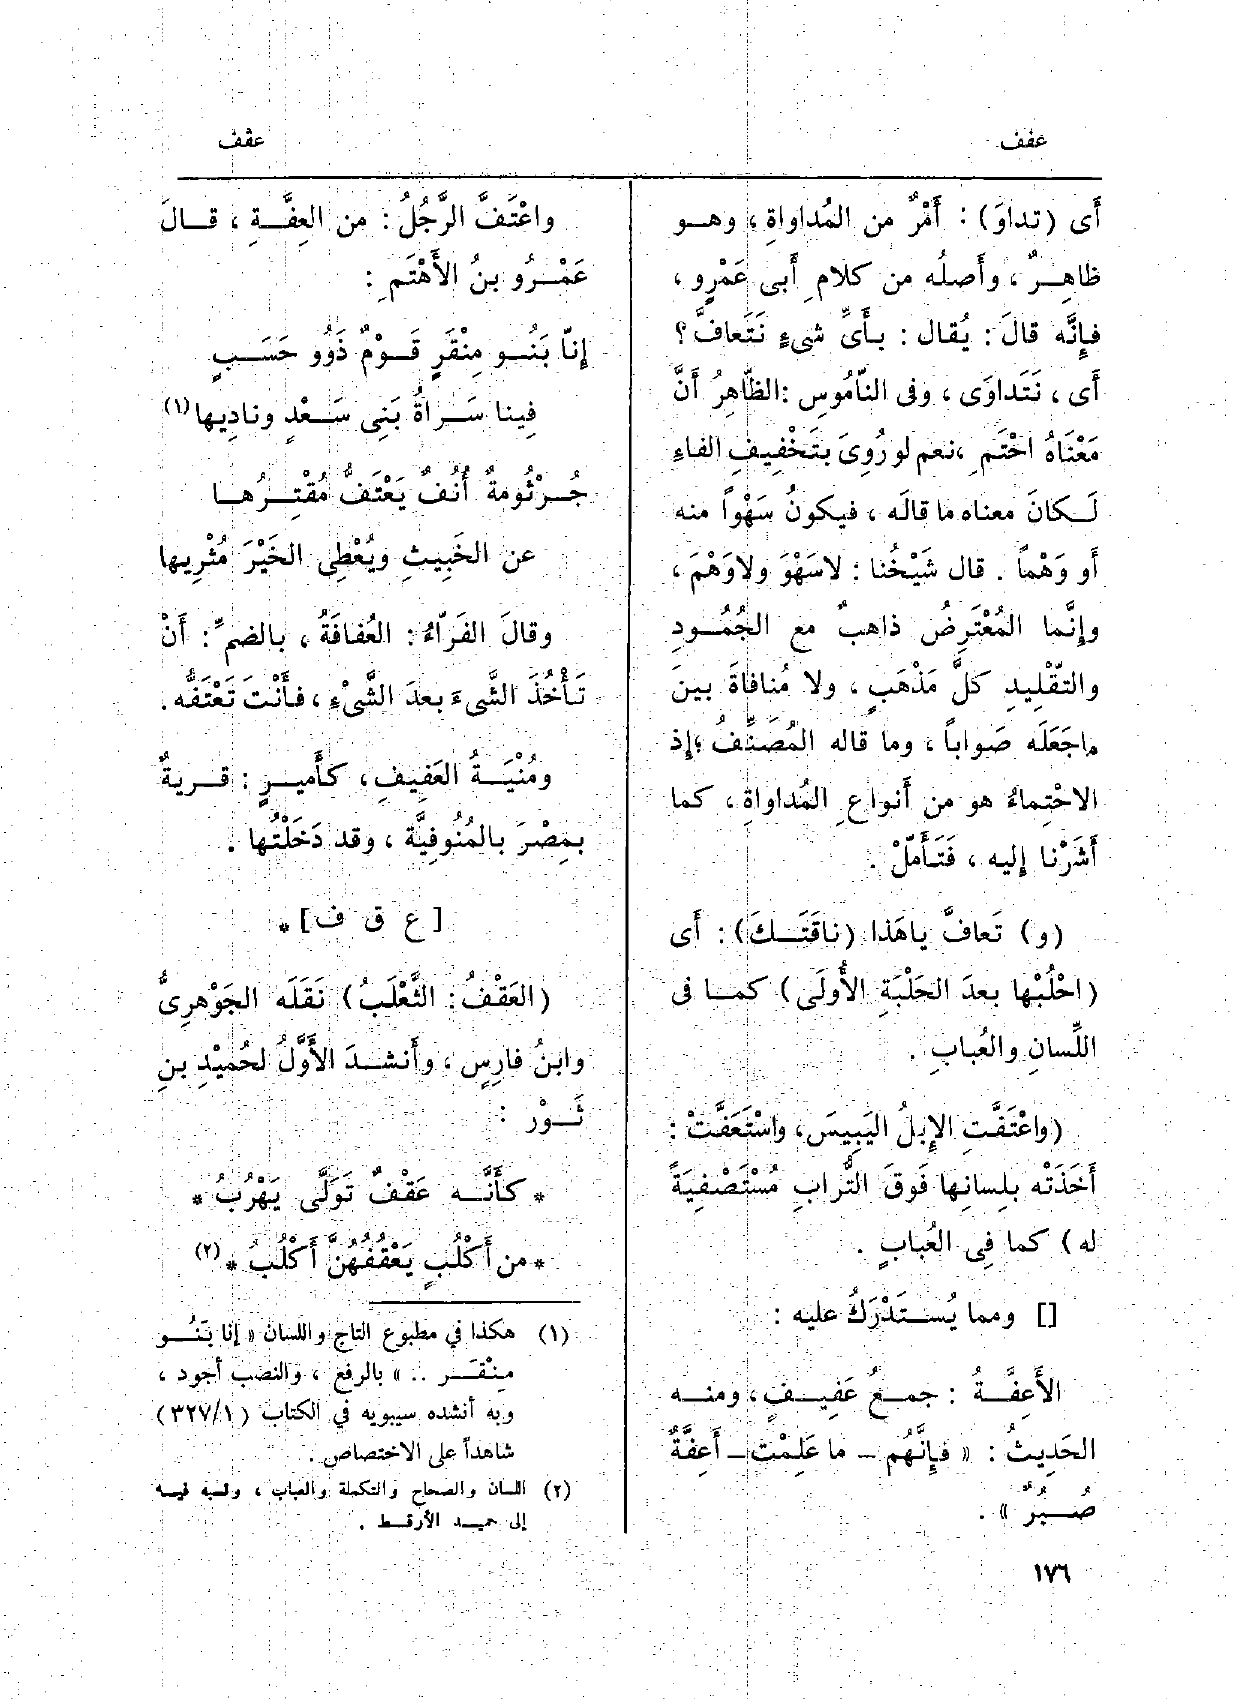 عفف
عفف
أَى (تداوَ) : أَمْرٌ من المُداواةِ ، وهـو
ظاهِـرٌ ، وأَصلُه من كلامِ أَبى عَمْرٍو ،
فإِنَّه قالَ : يُقال : بـأَىِّ شىءٍ نَتَعافُّ ؟
أَى ، نَتَداوَى ، وفى النّامُوسِ :الظّاهِرُ أَنَّ
مَعْنَاهُ اخْتَمِ ،نعم لو رُوِىَ بتَخْفِيفِ الفاءِ
لَـكانَ معناه ما قالَه ، فيكونُ سَهْواً منه
أَو وَهْماً . قال شَيْخُنا : لاسَهْوَ ولاوَهْمَ ،
وإِنَّما المُعْتَرِضُ ذاهبٌ مع الجُمُـودِ
والتَّقْلِيدِ كلَّ مَذْهَبٍ ، ولا مُنافاةَ بينَ
ماجَعَلَه صَواباً ، وما قاله المُصَنِّفُ ؛إِذ
الاحْتِماءُ هو من أَنواعِ المُداواةِ ، كما
أَشَرْنا إليه ، فَتَأَمّلْ .
(و) تَعافَّ ياهَذا (ناقَتَـكَ) : أَى
(احْلُبْها بعدَ الحَلْبَةِ الأُولَى) كمـا فى
اللِّسانِ والعُبابِ .
(واعْتَفَّتِ الإِبلُ اليَبِيسَ، واسْتَعَفَّتْ :
أَخَذَتْه بلِسانِها فَوقَ التُّرابِ مُسْتَصْفِيَةً
له) كما فِى العُبابِ .
[] ومما يُسـتَدْرَكُ عليه :
الأَعِفَّـةُ : جمـعُ عَفِيـفٍ ، ومنـه
الحَدِيثُ : « فإِنَّهُم – ما عَلِمْت – أَعِفَّةٌ
صُـبُرٌ » .
واعْتَفَّ الرَّجُلُ : من العِفَّـةِ ، قـالَ
عَمْـرُو بنُ الأَهْتَمِ :
إِنّا بَنُـو مِنْقَرٍ قَـوْمٌ ذَوُو حَسَـبٍ
فِينا سَـراةُ بَنِى سَـعْدٍ ونادِيها(١)
جُـرْثُومةٌ أُنُفٌ يَعْتَفُّ مُقْتِـرُهـا
عن الخَبِيثِ ويُعْطِى الخَيْرَ مُثْرِيها
وقالَ الفَرّاءُ : العُفافَةُ ، بالضمِّ : أَنْ
تَـأْخُذَ الشَّىءَ بعدَ الشَّىْءِ ، فـأَنْتَ تَعْتَفُّه.
ومُنْيَـةُ العَفِيفِ ، كأَميرٍ : قـريةٌ
بمِصْرَ بالمُنُوفِيَّة ، وقد دَخَلْتُها .
[ع ق ف] *
(العَقْفُ : الثَّعْلَبُ) نَقَلَه الجَوْهرِىُّ
وابنُ فارِسٍ ، وأَنشـدَ الأَوَّلُ لحُمَيْدِ بنِ
ثَـوْر :
* كأَنَّـه عَقْفٌ تَوَلَّى يَهْرُبُ *
* من أَكْلُبٍ يَعْقُفُهُنَّ أَكْلُبُ * (٢)
(١) هكذا في مطبوع التاج واللسان « إنا بَنُـو
مِنْقَـر .. » بالرفع ، والنصب أجود ،
وبه أنشده سيبويه في الكتاب (٣٢٧/١)
شاهداً على الاختصاص .
(٢) اللسان والصحاح والتكملة والعباب ، ونسبه فيـه
إلى حميـد الأرقـط .
١٧٦